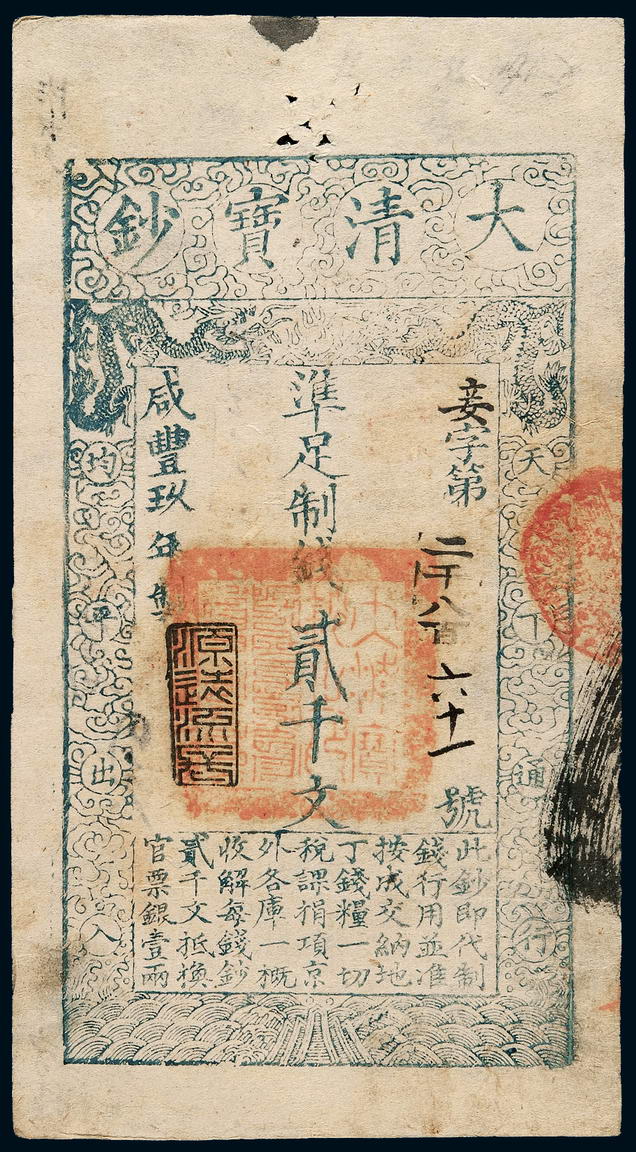 大清寶鈔
天下通行
均平出入
妾字第二千八百六十一號
準足制錢貳千文
咸豐玖年製
此鈔即代制
錢行用並准
按成交納地
丁錢糧一切
稅課捐項京
外各庫一概
收解每錢鈔
貳千文抵換
官票銀壹兩